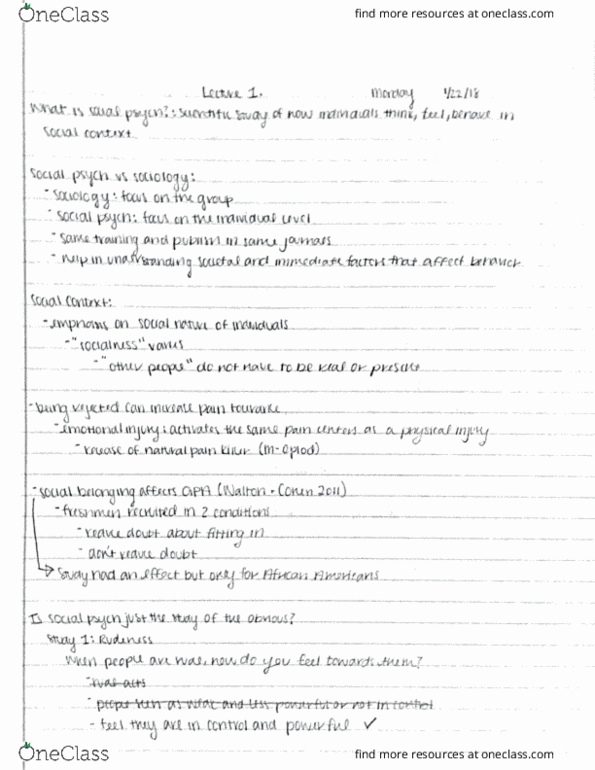 OneClass
find more resources at oneclass.com
Lecture 1. Monday 1/22/18
What is social psych?: scientific study of how individuals think, feel, behave in
social context
Social psych vs sociology:
- sociology: focus on the group
- social psych: focus on the individual level
- same training and publish in same journals
- help in understanding societal and immediate factors that affect behavior
Social Context:
- emphasis on social nature of individuals
- "socialness" varies
- "other people" do not have to be real or present
- being rejected can increase pain tolerance
- emotional injury: activates the same pain centers as a physical injury
- release of natural pain killer (m-opiod)
- social belonging affects GPA (Walton + Cohen 2011)
- freshmen recruited in 2 conditions
- leave doubt about fitting in
- don't leave doubt
Study had an effect but only for African Americans
Is social psych just the study of the obvious?
Study 1: Rudeness
When people are rude, how do you feel towards them?
- rude acts
- people seen as weak and less powerful or not in control
- feel they are in control and powerful ✓
OneClass
find more resources at oneclass.com